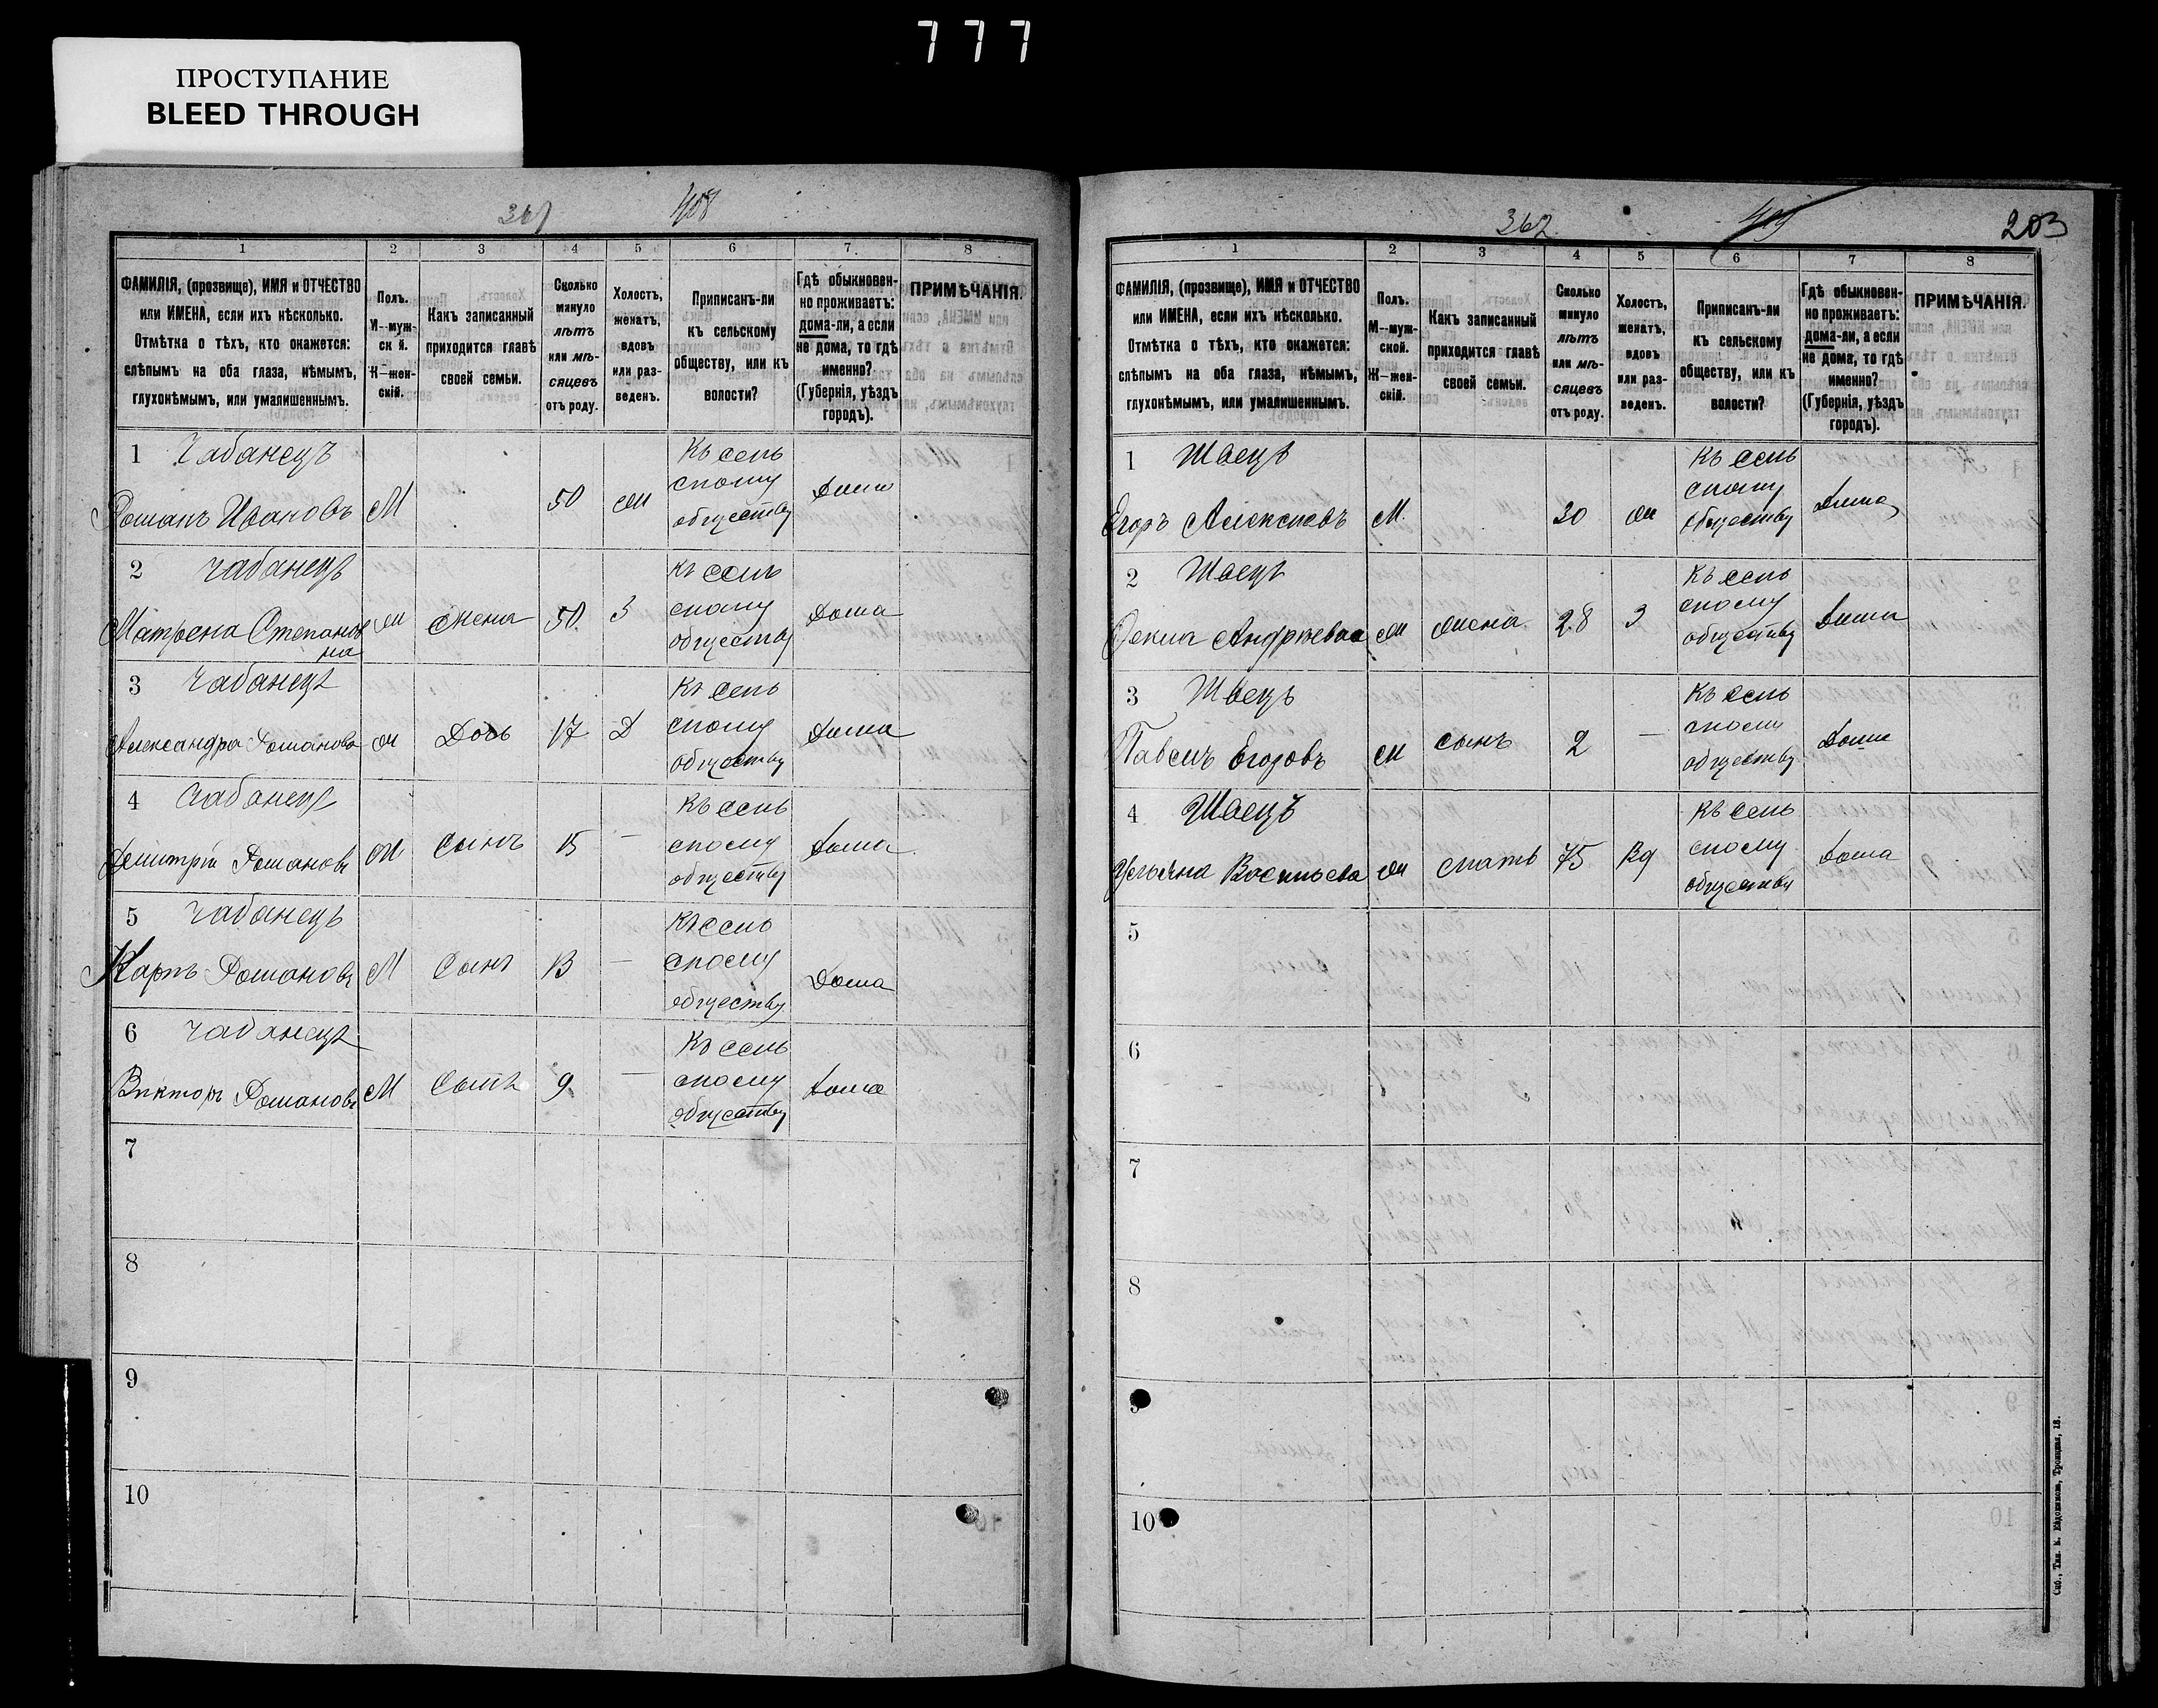 777
ПРОСТУПАНИЕ
BLEED THROUGH
361 408
1 2 3 4 5 6 7 8
ФАМИЛІЯ, (прозвище), ИМЯ и ОТЧЕСТВО или ИМЕНА, если ихъ нѣсколько. Отмѣтка о тѣхъ, кто окажется: слѣпымъ на оба глаза, нѣмымъ, глухонѣмымъ, или умалишеннымъ.
Полъ. М—мужской. Ж—женскій.
Какъ записанный приходится главѣ своей семьи.
Сколько минуло лѣтъ или мѣсяцевъ отъ роду.
Холостъ, женатъ, вдовъ или разведенъ.
Приписанъ-ли къ сельскому обществу, или къ волости?
Гдѣ обыкновенно проживаетъ: дома-ли, а если не дома, то гдѣ именно? (Губернія, уѣздъ городъ).
ПРИМѢЧАНІЯ.
1 Чабанецъ
Романъ Ивановъ М 50 ж Къ сельскому обществу Дома
2 Чабанецъ
Матрена Степановна ж жена 50 З Къ сельскому обществу Дома
3 Чабанецъ
Александра Романова ж Дочь 17 Д Къ сельскому обществу Дома
4 Чабанецъ
Димитрій Романовъ М Сынъ 15 — Къ сельскому обществу Дома
5 Чабанецъ
Карпъ Романовъ М Сынъ 13 — Къ сельскому обществу Дома
6 Чабанецъ
Викторъ Романовъ М Сынъ 9 — Къ сельскому обществу Дома
7
8
9
10
362 409 203
1 2 3 4 5 6 7 8
ФАМИЛІЯ, (прозвище), ИМЯ и ОТЧЕСТВО или ИМЕНА, если ихъ нѣсколько. Отмѣтка о тѣхъ, кто окажется: слѣпымъ на оба глаза, нѣмымъ, глухонѣмымъ, или умалишеннымъ.
Полъ. М—мужской. Ж—женскій.
Какъ записанный приходится главѣ своей семьи.
Сколько минуло лѣтъ или мѣсяцевъ отъ роду.
Холостъ, женатъ, вдовъ или разведенъ.
Приписанъ-ли къ сельскому обществу, или къ волости?
Гдѣ обыкновенно проживаетъ: дома-ли, а если не дома, то гдѣ именно? (Губернія, уѣздъ городъ).
ПРИМѢЧАНІЯ.
1 Швецъ
Егоръ Алексѣевъ М. 30 ж Къ сельскому обществу Дома
2 Швецъ
Андрѣевна ж жена 28 З Къ сельскому обществу Дома
3 Швецъ
Павелъ Егоровъ М сынъ 2 — Къ сельскому обществу Дома
4 Швецъ
Ульяна Васильева ж мать 75 Вд Къ сельскому обществу Дома
5
6
7
8
9
10
Спб., Тип. Е. Евдокимова, Троицкая, 18.